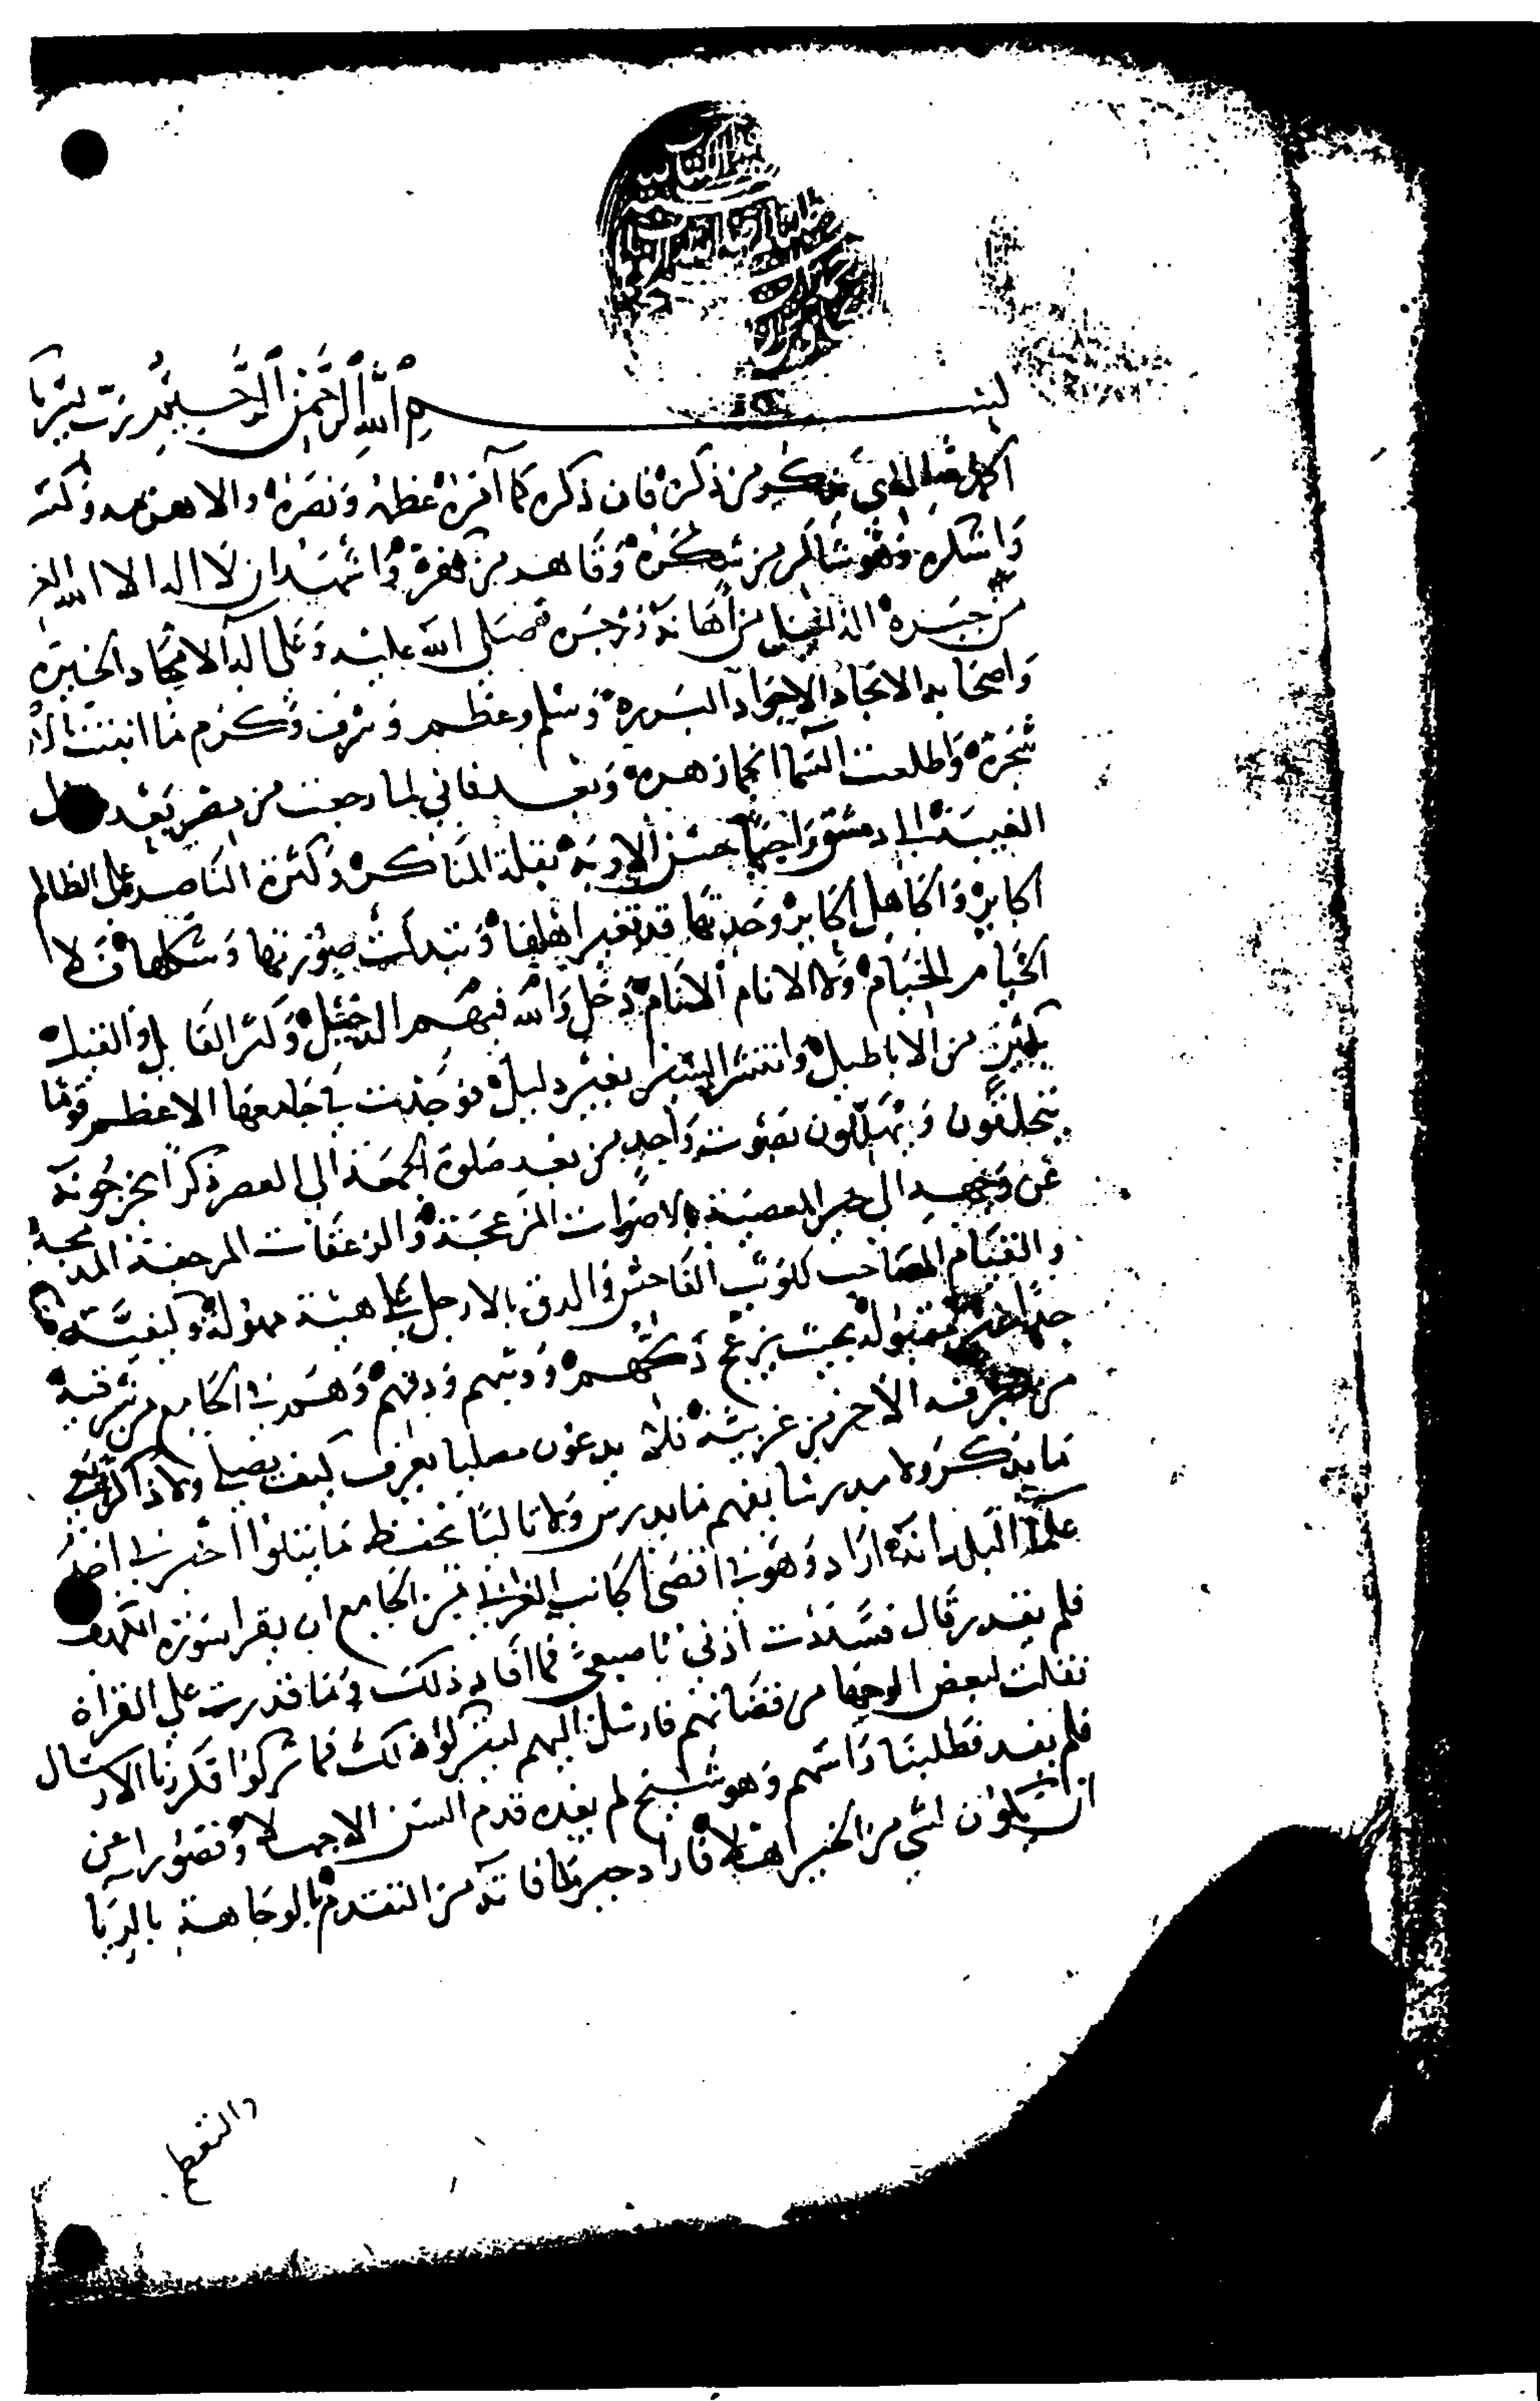 بسم الله الرحمن الرحيم رب يسر يا
الحمد لله الذي يذكر من ذكره فان ذكره كما امره عظمه ونصره والا هزمه وكسره
واشكره وهو شاكر من شكره وقاهر من كفره واشهد ان لا اله الا الله
من جبره الذليل من اهانه وزجره فصلى الله عليه وعلى اله الامجاد الخيره
واصحابه الانجاد الاجواد البرره وسلم وعظم وشرف وكرم ما انبتت الارض
شجرة واطلعت السما انجما زهره وبعد فاني لما رجعت من سفر بعد
الغيبة الى دمشق راجيا حسن الاوبه بقلة المناكر وكثرة الناصر على الظالم
اكابر وكاهل اكابر وجدتها قد تغير اهلها وتبدلت صورتها وشكلها فلا
الخيام الخيام ولا الانام الانام دخل والله فيهم الدخيل وكثر القال والقيل
بكثير من الاباطيل وانتشر الشر بغير دليل فوجدت في جامعها الاعظم قوما
يتحلقون ويهللون بصوت واحد من بعد صلوة الجمعة الى العصر ذكرا يخرجونه
عن وجهه الى حيز المعصية بالاصوات المزعجة والزعقات المرجفة
والقيام المصاحب للوثب الفاحش والدق بالارجل على هيئة مهولة وكيفية
جدا غير مقبولة بحيث يزعج ذكرهم ووثبهم ودقهم وهم في الجامع من شرقيه
من طرفه الاخر من غربيه فلا يدعون مصليا يعرف كيف يصلي ولا ذاكرا يعي
ما يذكر ولا مدرسا يفهم ما يدرس ولا تاليا يحفظ ما يتلوا اخبرني احد
علما البلد انه اراد وهو في اقصى الجانب الغربي من الجامع ان يقرا سورة الكهف
فلم يقدر قال فسددت اذني باصبعي فما افاد ذلك وما قدرت على القراة
فقلت لبعض الوجها من قضاتهم فارسل اليهم ليتركوا ذلك فما تركوا فكررنا الارسال
فلم يفد فطلبنا راسهم وهو شيخ لم يفده قدم السن الا جهلا وقصورا عن
ان يكون لشي من الخير اهلا فاراد جبر ما فاته من التقدم بالوجاهة بالريا
والتقطع